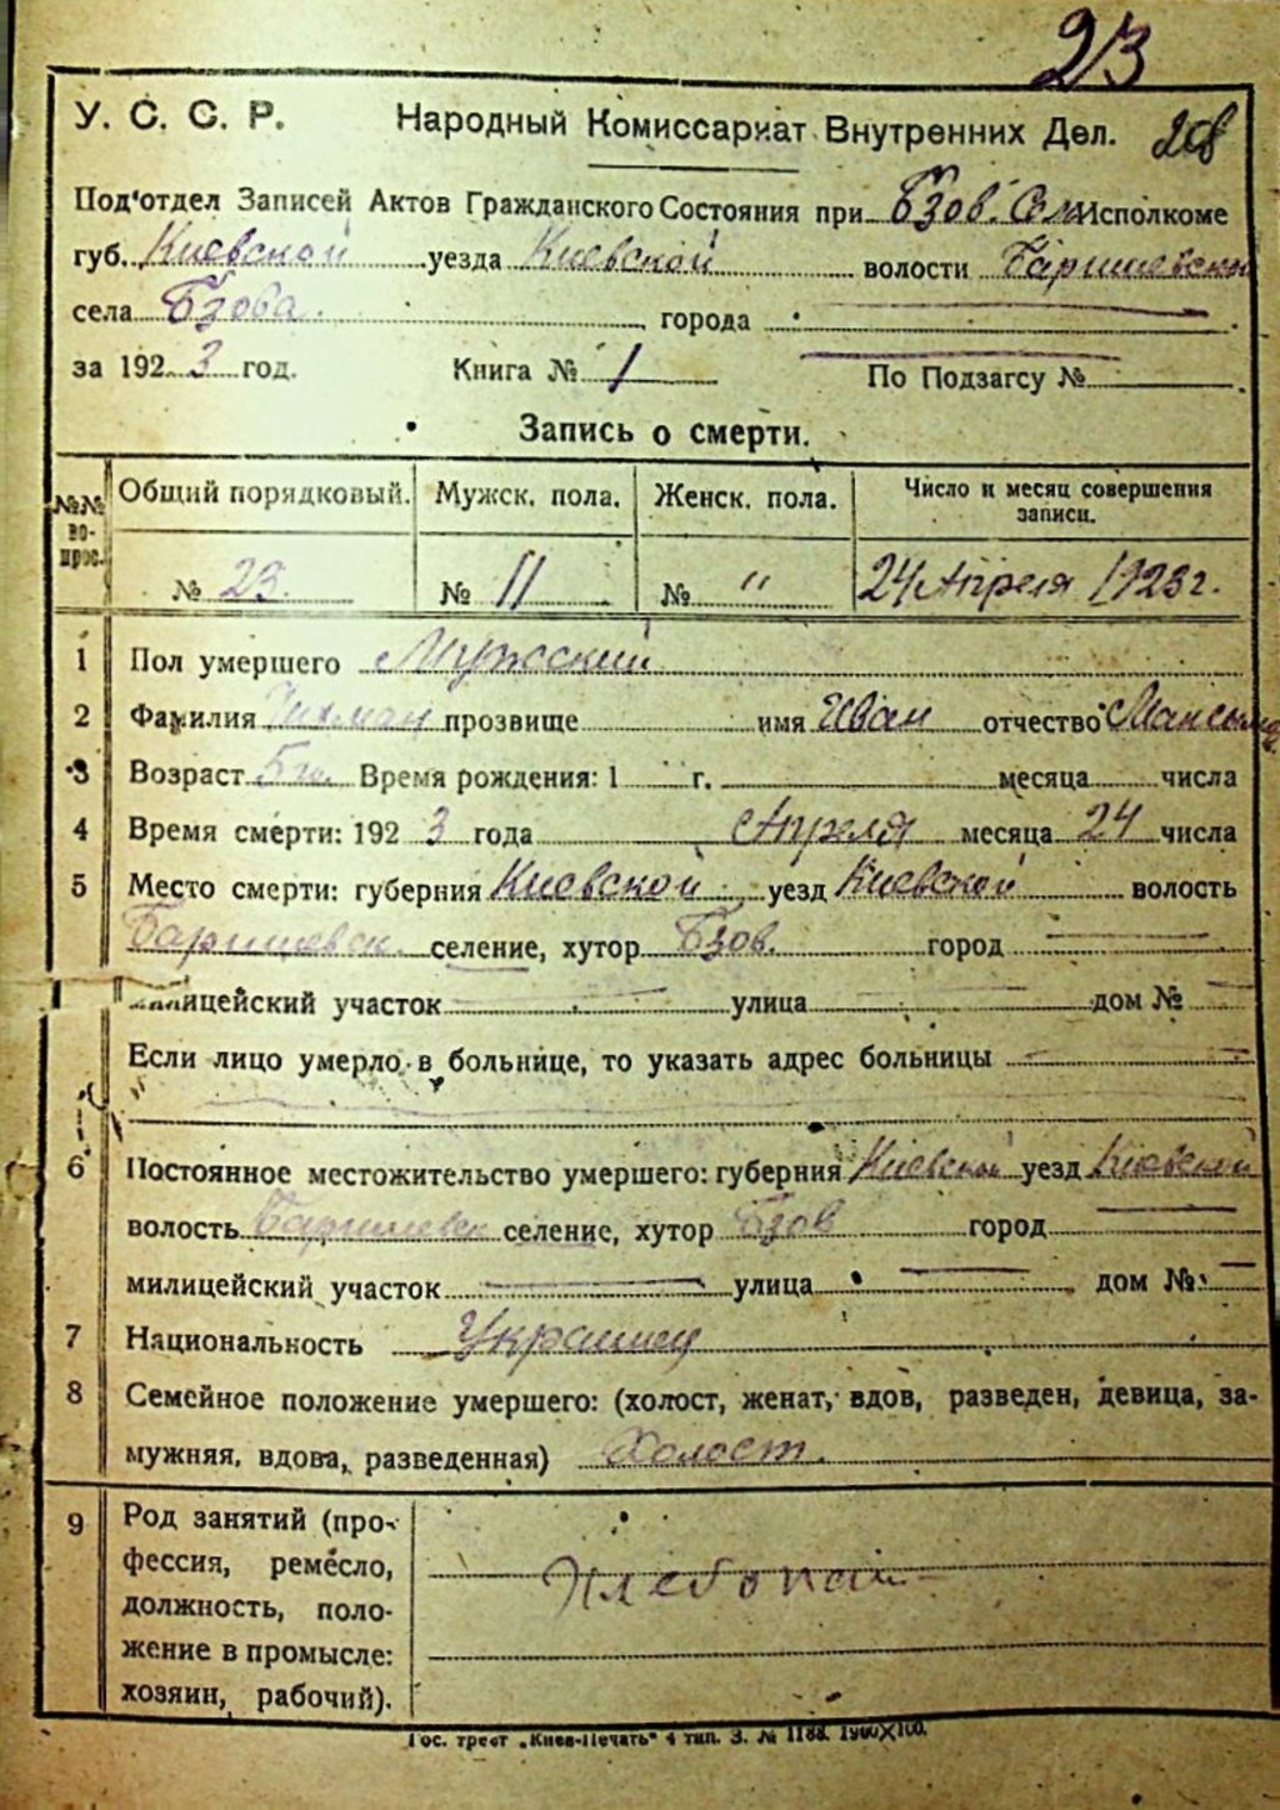 23
У. С. С. Р. Народный Комиссариат Внутренних Дел.
Под'отдел Записей Актов Гражданского Состояния при Бзов. Исполкоме
губ. Киевской уезда Киевской волости Баришевской
села Бзова. города
за 1923 год. Книга № 1 По Подзагсу №
Запись о смерти.
№№ вопрос. Общий порядковый. Мужск. пола. Женск. пола. Число и месяц совершения записи.
№ 23. № 11 № " 24 Апреля 1923 г.
1 Пол умершего Мужский
2 Фамилия прозвище имя Иван отчество
3 Возраст Время рождения: 1 г. месяца числа
4 Время смерти: 1923 года Апреля месяца 24 числа
5 Место смерти: губерния Киевской уезд Киевской волость
Баришевск. селение, хутор Бзов. город
милицейский участок улица дом №
Если лицо умерло в больнице, то указать адрес больницы
6 Постоянное местожительство умершего: губерния Киевской уезд Киевской
волость Баришевск селение, хутор Бзов город
милицейский участок улица дом №
7 Национальность Украинец
8 Семейное положение умершего: (холост, женат, вдов, разведен, девица, за-
мужняя, вдова, разведенная) Холост.
9 Род занятий (про-
фессия, ремесло,
должность, поло-
жение в промысле:
хозяин, рабочий).
Гос. трест „Киев-Печать" 4 тип. З. № 1188.